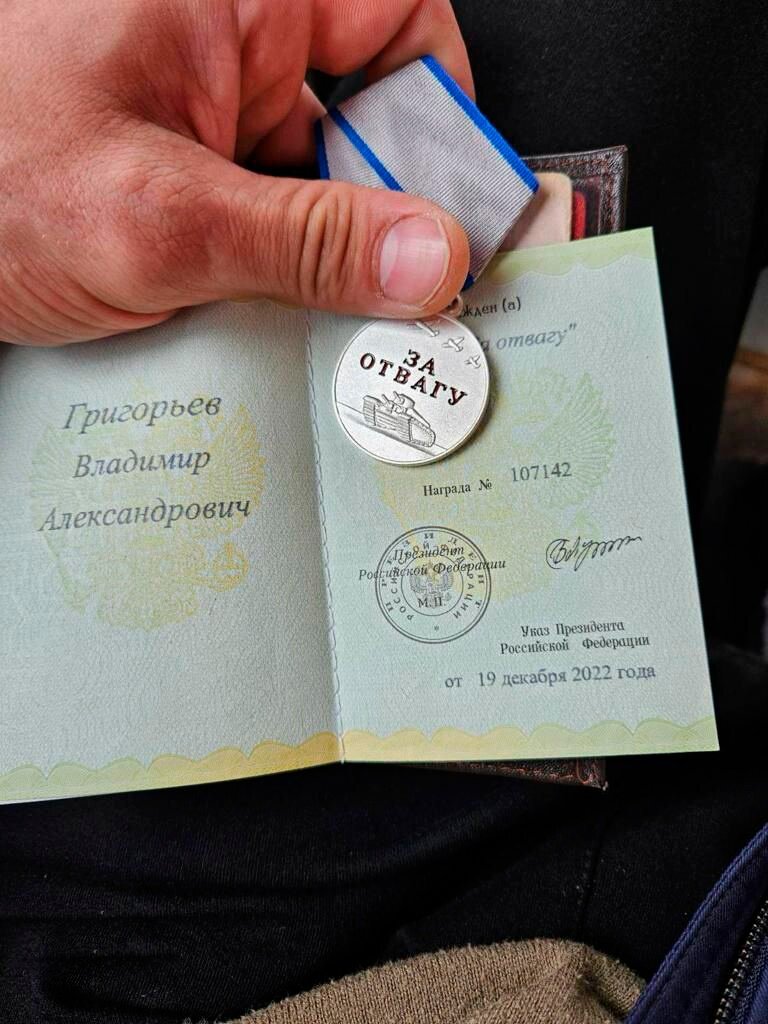 Григорьев
Владимир
Александрович
ЗА
ОТВАГУ
отвагу"
Награда № 107142
Президент
Российской Федерации
М.П.
ПРЕЗИДЕНТ
РОССИЙСКОЙ ФЕДЕРАЦИИ
Указ Президента
Российской Федерации
от 19 декабря 2022 года